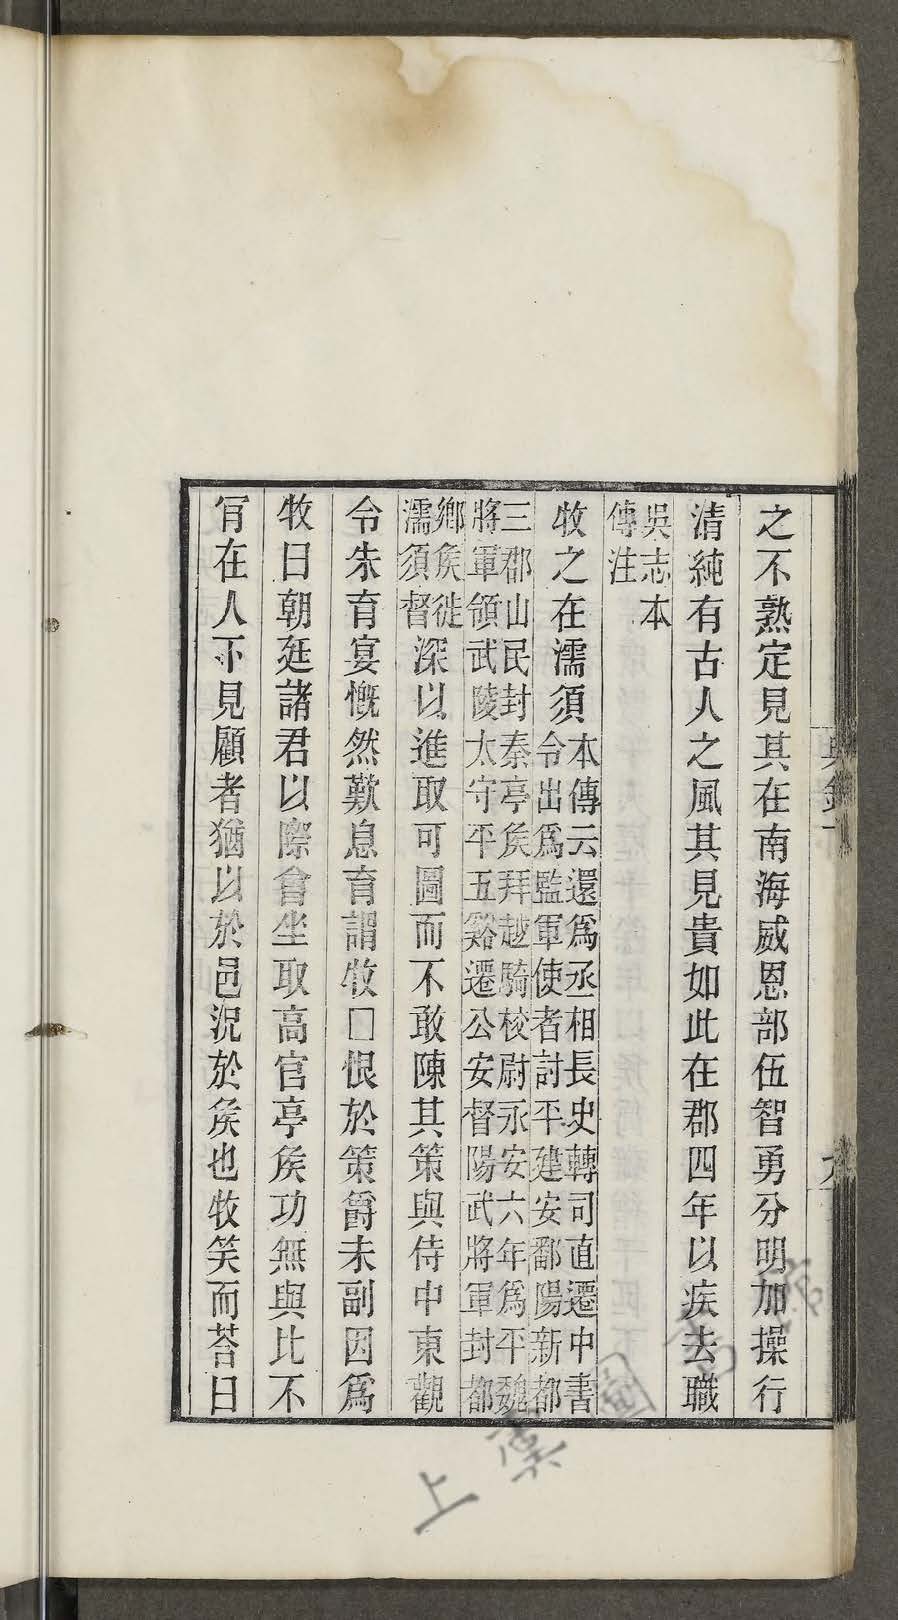 之不熟定見其在南海威恩部伍智勇分明加操行
清純有古人之風其見貴如此在郡四年以疾去職
吳志本
傳注
牧之在濡須
本傳云還爲丞相長史轉司直遷中書
令出爲監軍使者討平建安鄱陽新都
三郡山民封秦亭矦拜越騎校尉永安六年爲平魏
將軍領武陵太守平五谿遷公安督陽武將軍封都
鄉矦徙
濡須督
深以進取可圖而不敢陳其策與侍中東觀
令朱育宴慨然歎息育謂牧□恨於策爵未副因爲
牧曰朝廷諸君以際會坐取高官亭矦功無與比不
肎在人下見顧者猶以於邑況於矦也牧笑而荅曰
上虞圖